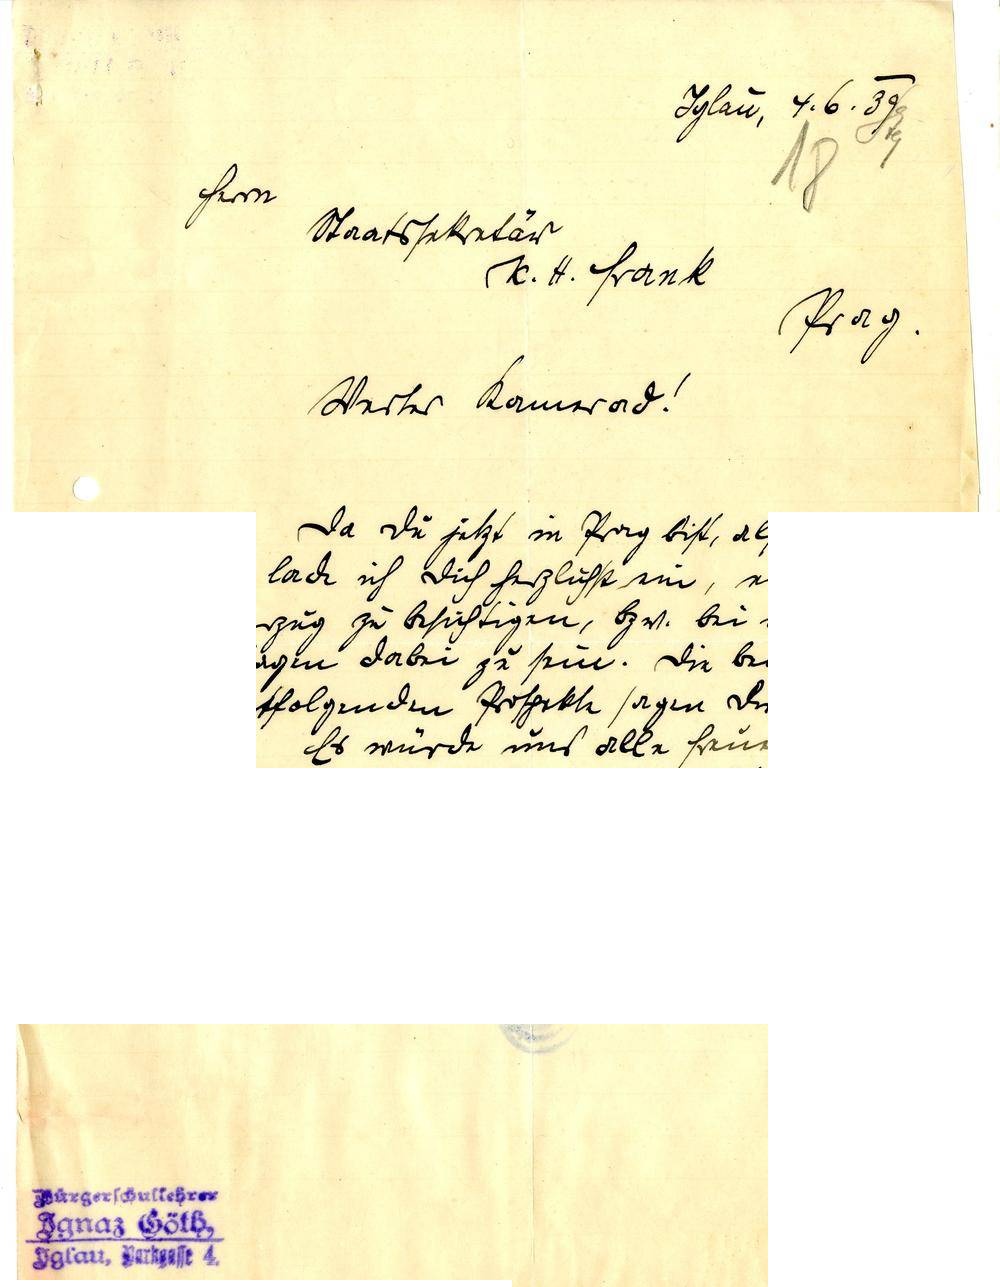 Iglau, 4.6.39
18
Herrn
Staatssekretär
K. H. Frank
Prag.
Werter Kamerad!
Da Du jetzt in Prag bist, al
lade ich Dich herzlichst ein,
rzug zu besichtigen, bzw. bei
agen dabei zu sein. Die be
tfolgenden Prospekte sagen
Es würde uns alle freue
Bürgerschullehrer
Ignaz Göth,
Iglau, Parkgasse 4.